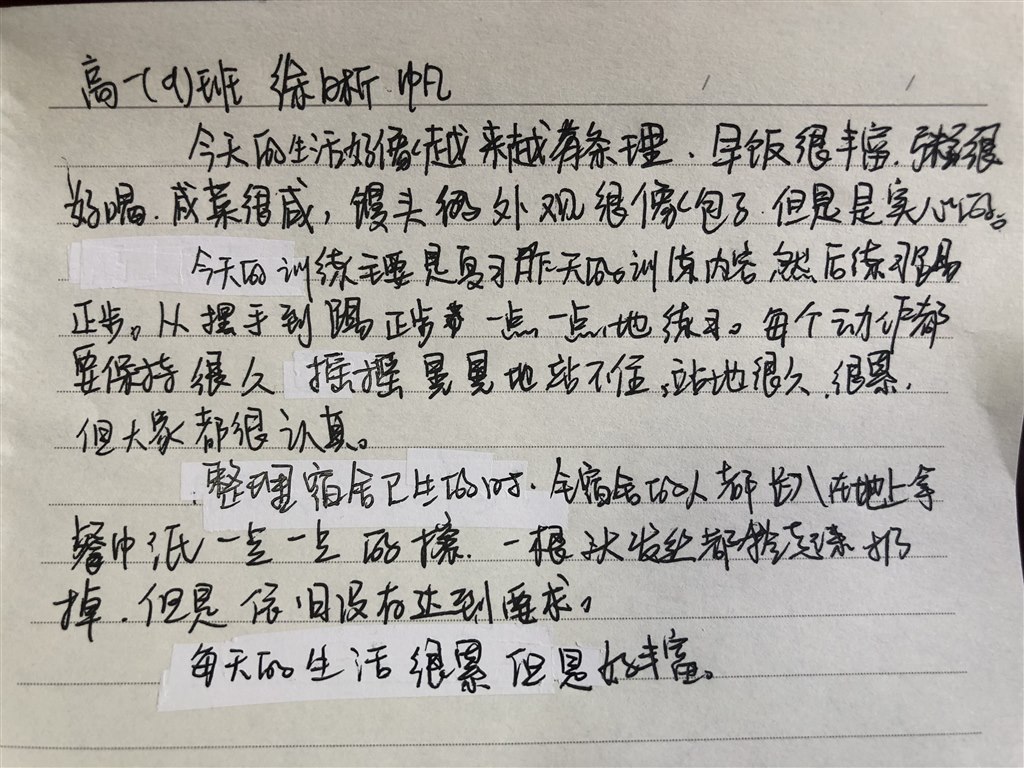 高一(9)班 徐晰帆
今天的生活好像越来越有条理.早饭很丰富.粥很
好喝.咸菜很咸,馒头的外观很像包子.但是是实心的。
今天的训练主要是复习昨天的训练内容.然后练习踢
正步。从摆手到踢正步 一点一点地练习。每个动作都
要保持很久 摇摇晃晃地站不住,站地很久.很累.
但大家都很认真。
整理宿舍卫生的时.全宿舍的人都趴在地上拿
餐巾纸一点一点的擦.一根头发丝都捡起来扔
掉.但是依旧没有达到要求,
每天的生活很累但是好丰富。